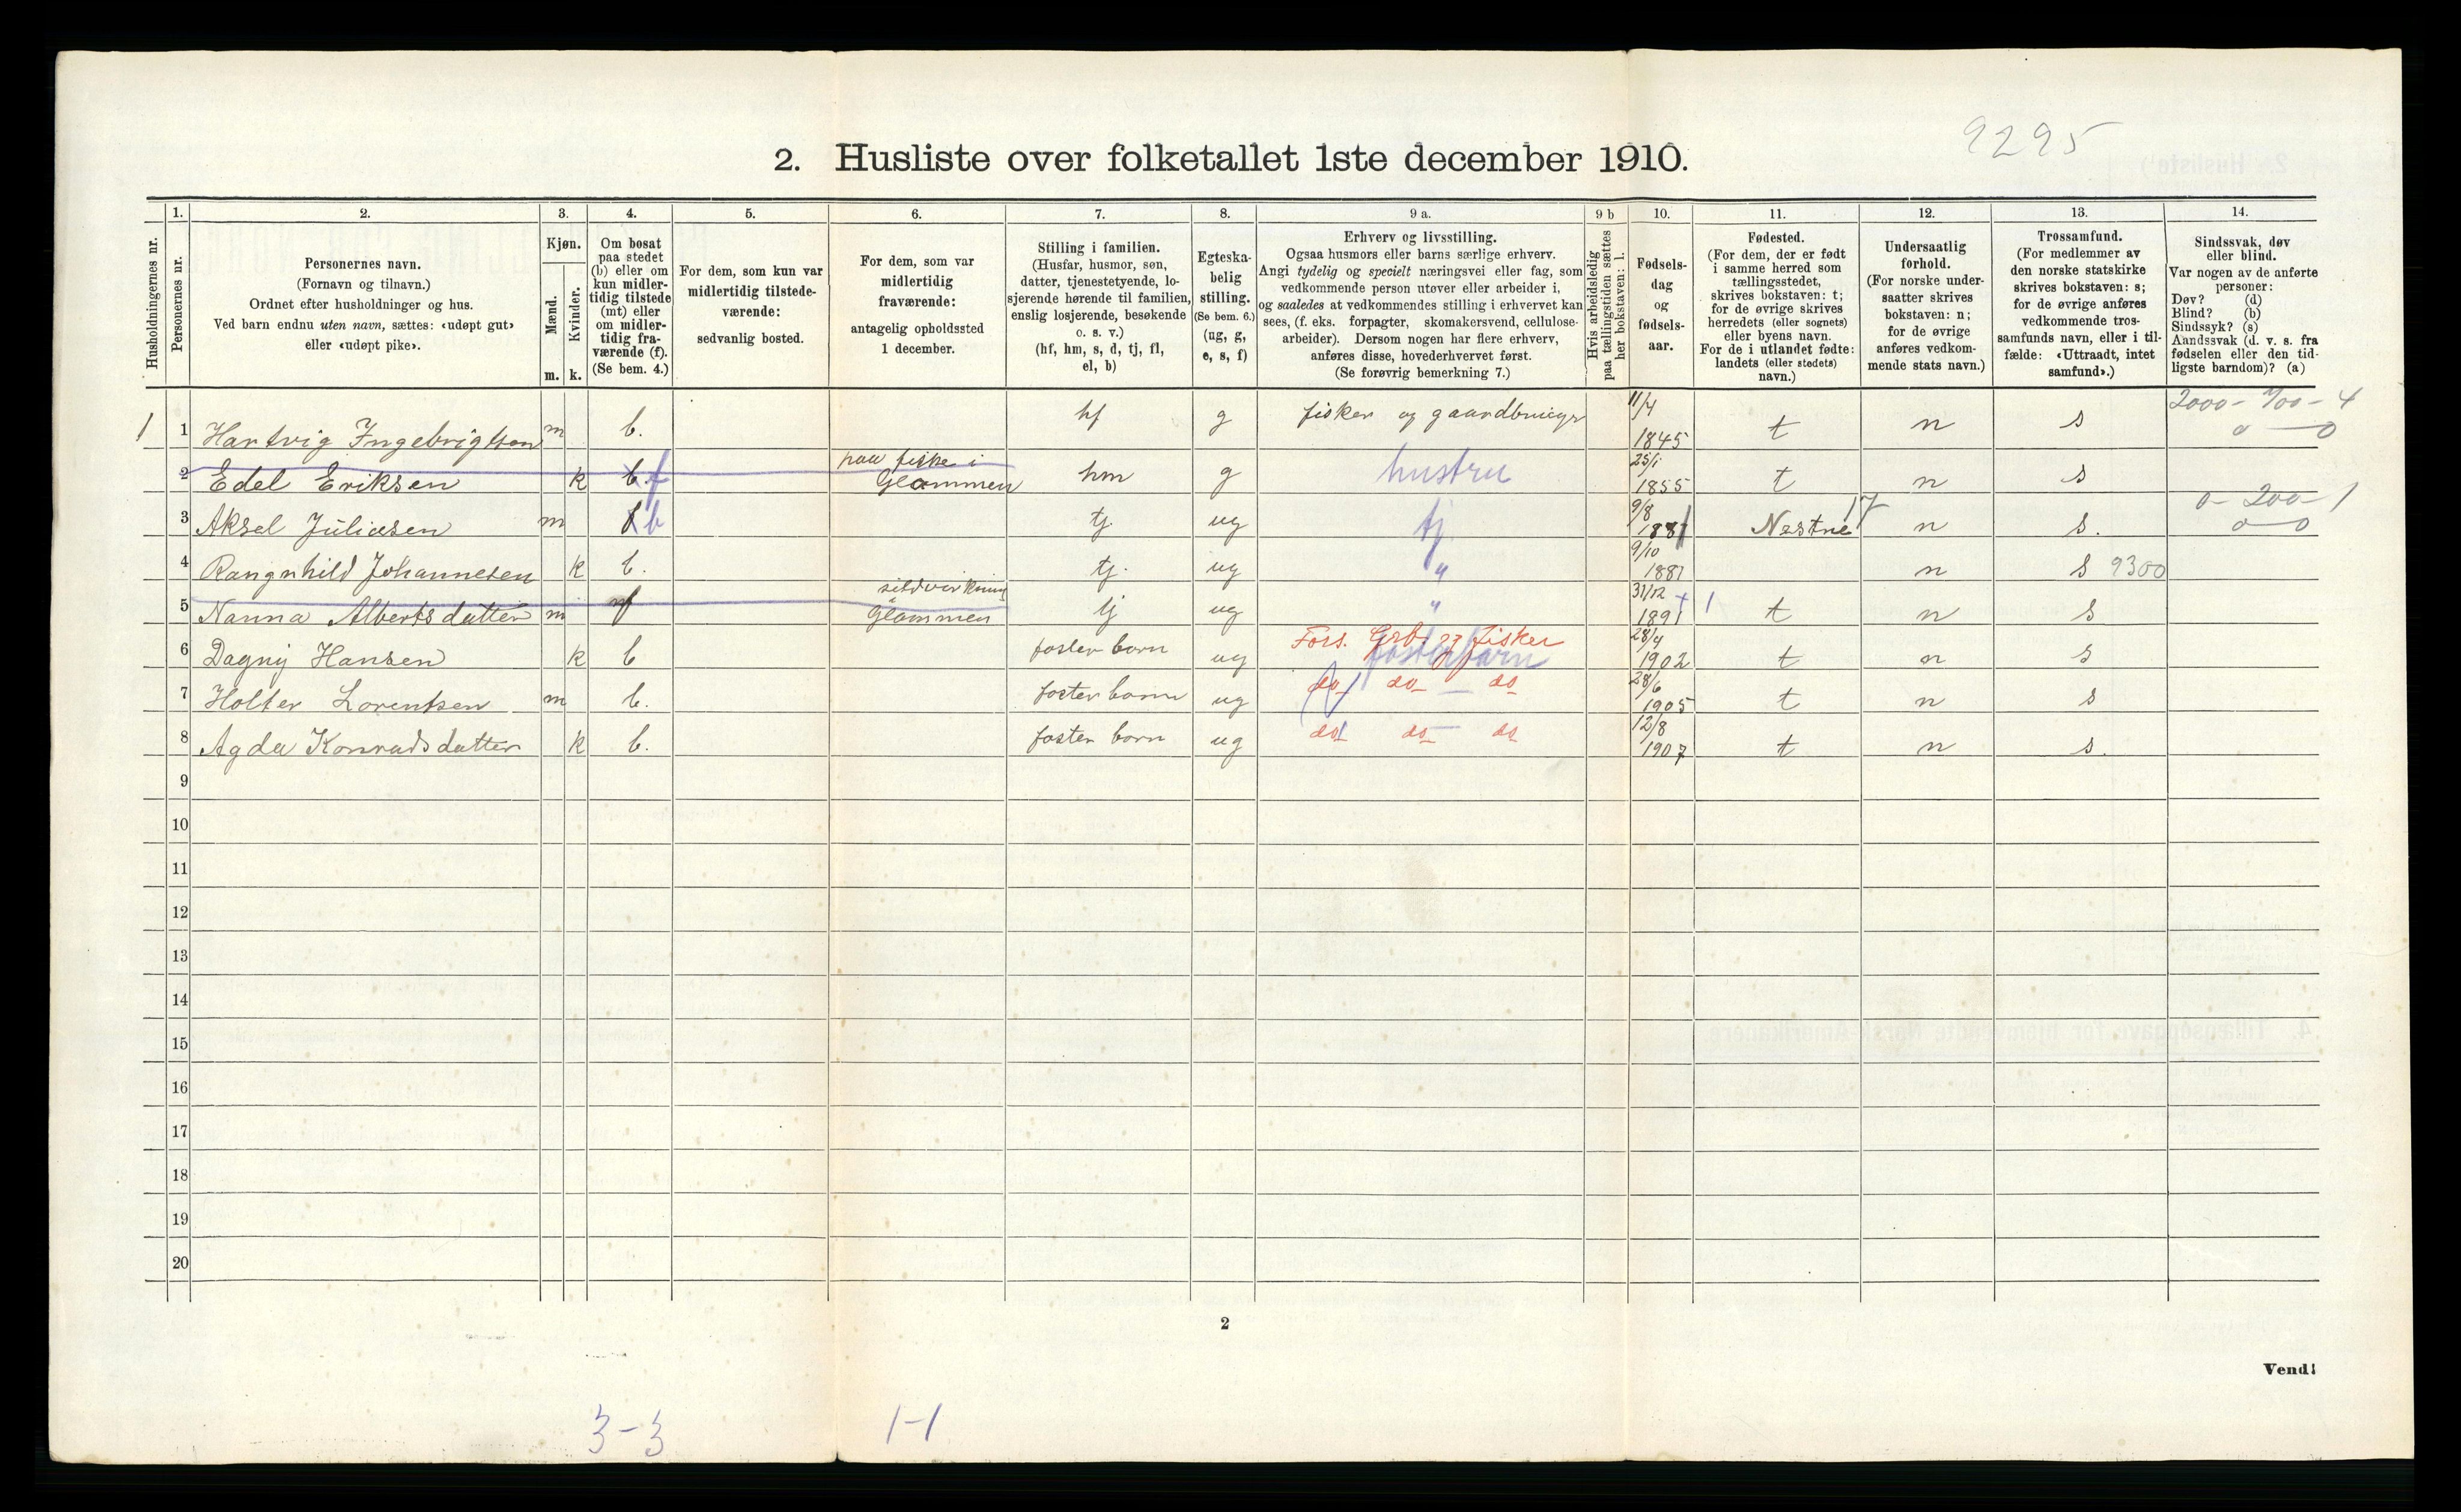 9295
2. Husliste over folketallet 1ste december 1910.
Husholdningernes nr.
1.
Personernes nr.
2.
Personernes navn.
(Fornavn og tilnavn.)
Ordnet efter husholdninger og hus.
Ved barn endnu uten navn, sættes: «udøpt gut»
eller «udøpt pike».
3.
Kjøn.
Mænd.
Kvinder.
m. k.
4.
Om bosat
paa stedet
(b) eller om
kun midler-
tidig tilstede
(mt) eller
om midler-
tidig fra-
værende (f).
(Se bem. 4.)
5.
For dem, som kun var
midlertidig tilstede-
værende:
sedvanlig bosted.
6.
For dem, som var
midlertidig
fraværende:
antagelig opholdssted
1 december.
7.
Stilling i familien.
(Husfar, husmor, søn,
datter, tjenestetyende, lo-
sjerende hørende til familien,
enslig losjerende, besøkende
o. s. v.)
(hf, hm, s, d, tj, fl,
el, b)
8.
Egteska-
belig
stilling.
(Se bem. 6.)
(ug, g,
e, s, f)
9 a.
Erhverv og livsstilling.
Ogsaa husmors eller barns særlige erhverv.
Angi tydelig og specielt næringsvei eller fag, som
vedkommende person utøver eller arbeider i,
og saaledes at vedkommendes stilling i erhvervet kan
sees, (f. eks. forpagter, skomakersvend, cellulose-
arbeider). Dersom nogen har flere erhverv,
anføres disse, hovederhvervet først.
(Se forøvrig bemerkning 7.)
9 b
Hvis arbeidsledig
paa tællingstiden sættes
her bokstaven: l.
10.
Fødsels-
dag
og
fødsels-
aar.
11.
Fødested.
(For dem, der er født
i samme herred som
tællingsstedet,
skrives bokstaven: t;
for de øvrige skrives
herredets (eller sognets)
eller byens navn.
For de i utlandet fødte:
landets (eller stedets)
navn.)
12.
Undersaatlig
forhold.
(For norske under-
saatter skrives
bokstaven: n;
for de øvrige
anføres vedkom-
mende stats navn.)
13.
Trossamfund.
(For medlemmer av
den norske statskirke
skrives bokstaven: s;
for de øvrige anføres
vedkommende tros-
samfunds navn, eller i til-
fælde: «Uttraadt, intet
samfund».)
14.
Sindssvak, døv
eller blind.
Var nogen av de anførte
personer:
Døv? (d)
Blind? (b)
Sindssyk? (s)
Aandssvak (d. v. s. fra
fødselen eller den tid-
ligste barndom)? (a)
1 1 Hartvig Ingebrigtsen m b. hf g fisker og gaardbruger 11/4 1845 t n s 2000-700-4
0 — 0
2 Edel Eriksen k b f paa fiske i Glommen hm g hustru 25/1 1855 t n s
3 Aksel Juliesen m b tj. ug tj 9/8 1881 Nestne 17 n s. 0-200-1
0 — 0
4 Rangnhild Johannesen k b. tj. ug " 9/10 1881 n s 9300
5 Nanna Albertsdatter m f sildvirkning Glommen tj ug " 31/12 1891 t n s
6 Dagny Hansen k b foster born ug Fors. Grb. og fisker fosterbarn 28/4 1902 t n s
7 Holter Lorentsen m b. foster born ug do do — do 28/6 1905 t n s
8 Agda Konradsdatter k b. foster born ug do do do 12/8 1907 t n s.
9
10
11
12
13
14
15
16
17
18
19
20
2
Vend!
3-3
1-1